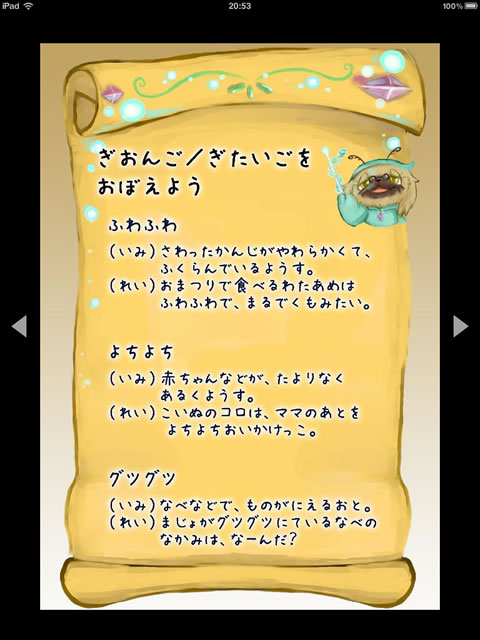 iPad
20:53
100%
ぎおんご／ぎたいごを
おぼえよう
ふわふわ
(いみ)さわったかんじがやわらかくて、
ふくらんでいるようす。
(れい)おまつりで食べるわたあめは
ふわふわで、まるでくもみたい。
よちよち
(いみ)赤ちゃんなどが、たよりなく
あるくようす。
(れい)こいぬのコロは、ママのあとを
よちよちおいかけっこ。
グツグツ
(いみ)なべなどで、ものがにえるおと。
(れい)まじょがグツグツにているなべの
なかみは、なーんだ?